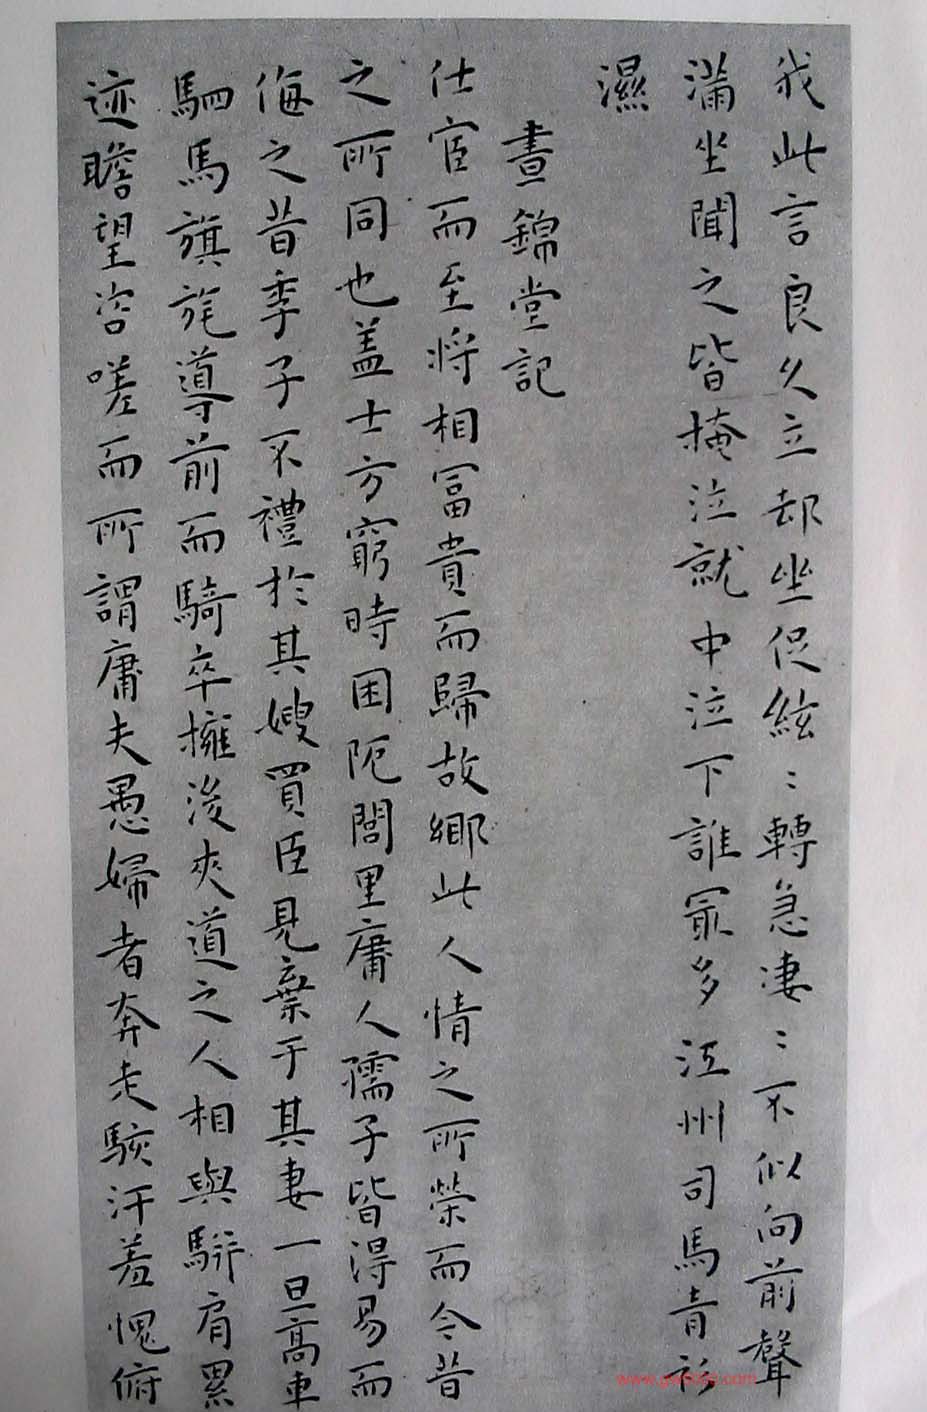 我此言良久立却坐促絃〻轉急凄〻不似向前聲
滿坐聞之皆掩泣就中泣下誰冣多江州司馬青衫
濕
晝錦堂記
仕宦而至將相冨貴而歸故鄉此人情之所榮而今昔
之所同也盖士方窮時困阨閭里庸人孺子皆得易而
侮之昔季子不禮於其嫂買臣見棄于其妻一旦高車
駟馬旗旄導前而騎卒擁後夾道之人相與駢肩累
迹瞻望咨嗟而所謂庸夫愚婦者奔走駭汗羞愧俯